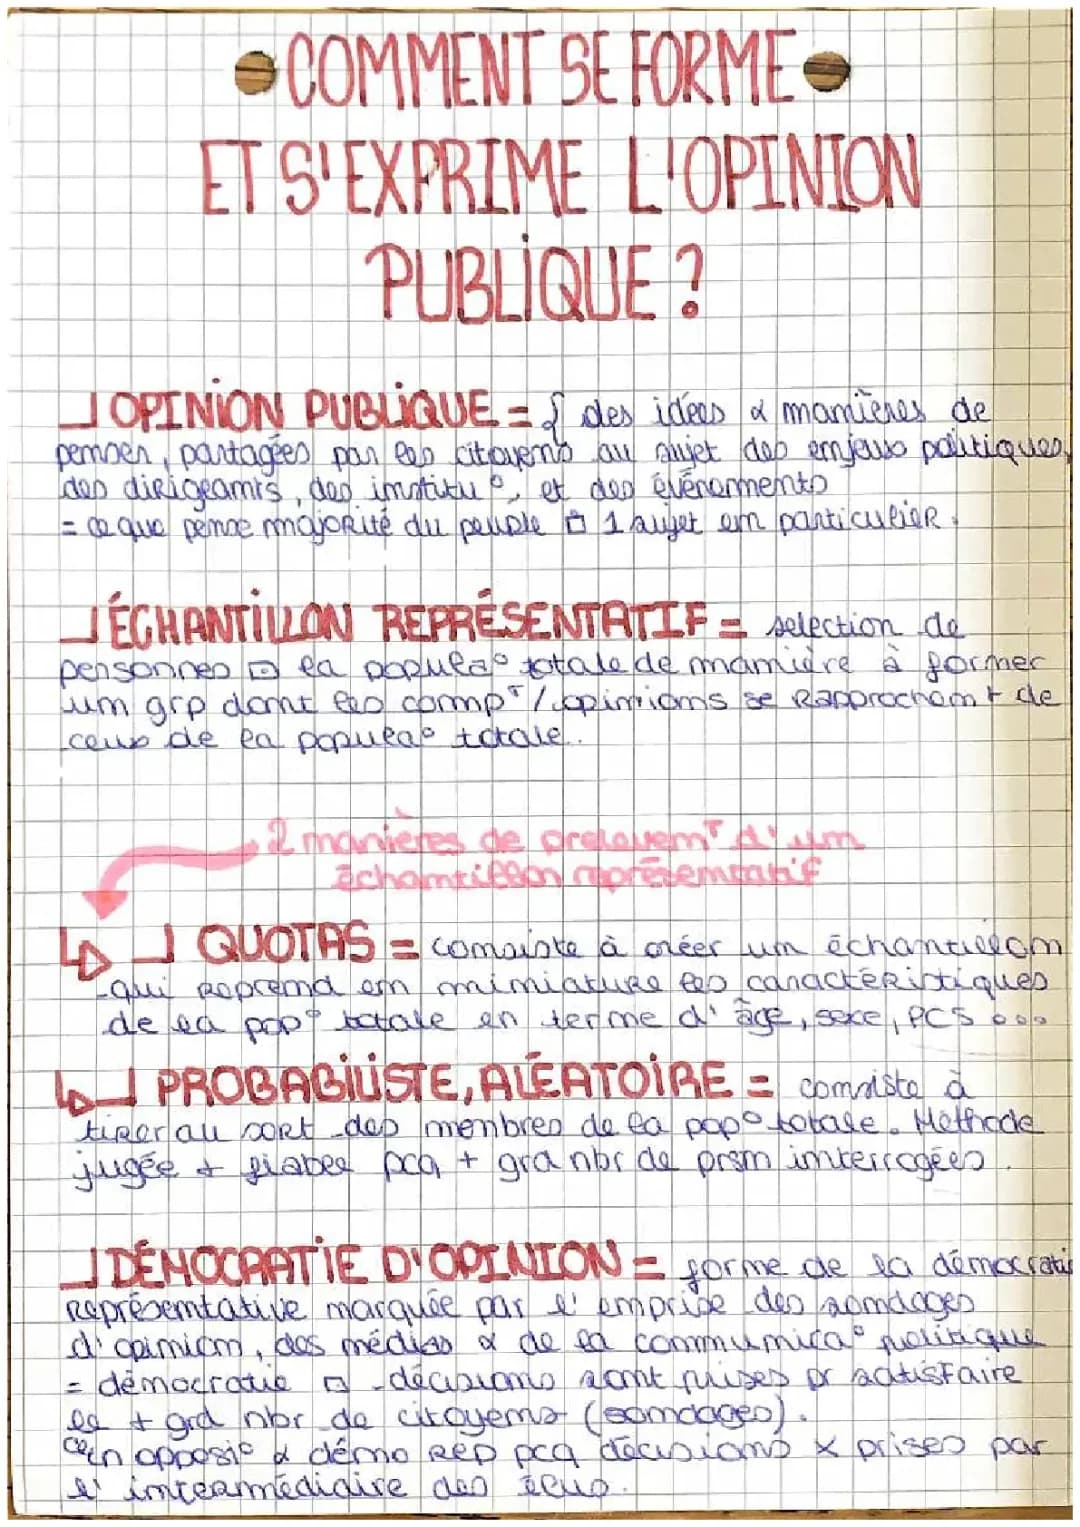 COMMENT SE FORME
ET S'EXPRIME L'OPINION
PUBLIQUE ?
OPINION PUBLIQUE = des idées & manières de
penser, partagées par les citoyens au sujet des enjeux politiques,
des dirigeants, des institu°, et des événements
= ce que pense majorité du peuple 1 sujet en particulier.
ÉCHANTILLON REPRÉSENTATIF = selection de
personnes la popula° totale de manière à former
um grp dont les compT / opinions se rapprochent de
ceux de la popula° totale.
2 manières de prelevemT d'um
échantillon représentatif
QUOTAS = consiste à créer um échantillon
qui reprend en miniature les caractéristiques
de la pop° totale en terme d'âge, sexe, PCS ...
PROBABILISTE, ALÉATOIRE = consiste à
tirer au sort des membres de la pop° totale. Méthode
jugée + fiable pcq + grd nbr de prsn interrogées.
DÉMOCRATIE D'OPINION = forme de la démocrati
représentative marquée par l'emprise des sondages
d'opinion, des médias & de la communica° politique
= démocratie décisions sont prises pr satisfaire
le + grd nbr de citoyens (sondages).
en opposi° démo REP pcq décisions × prises par
l'intermédiaire des élus.